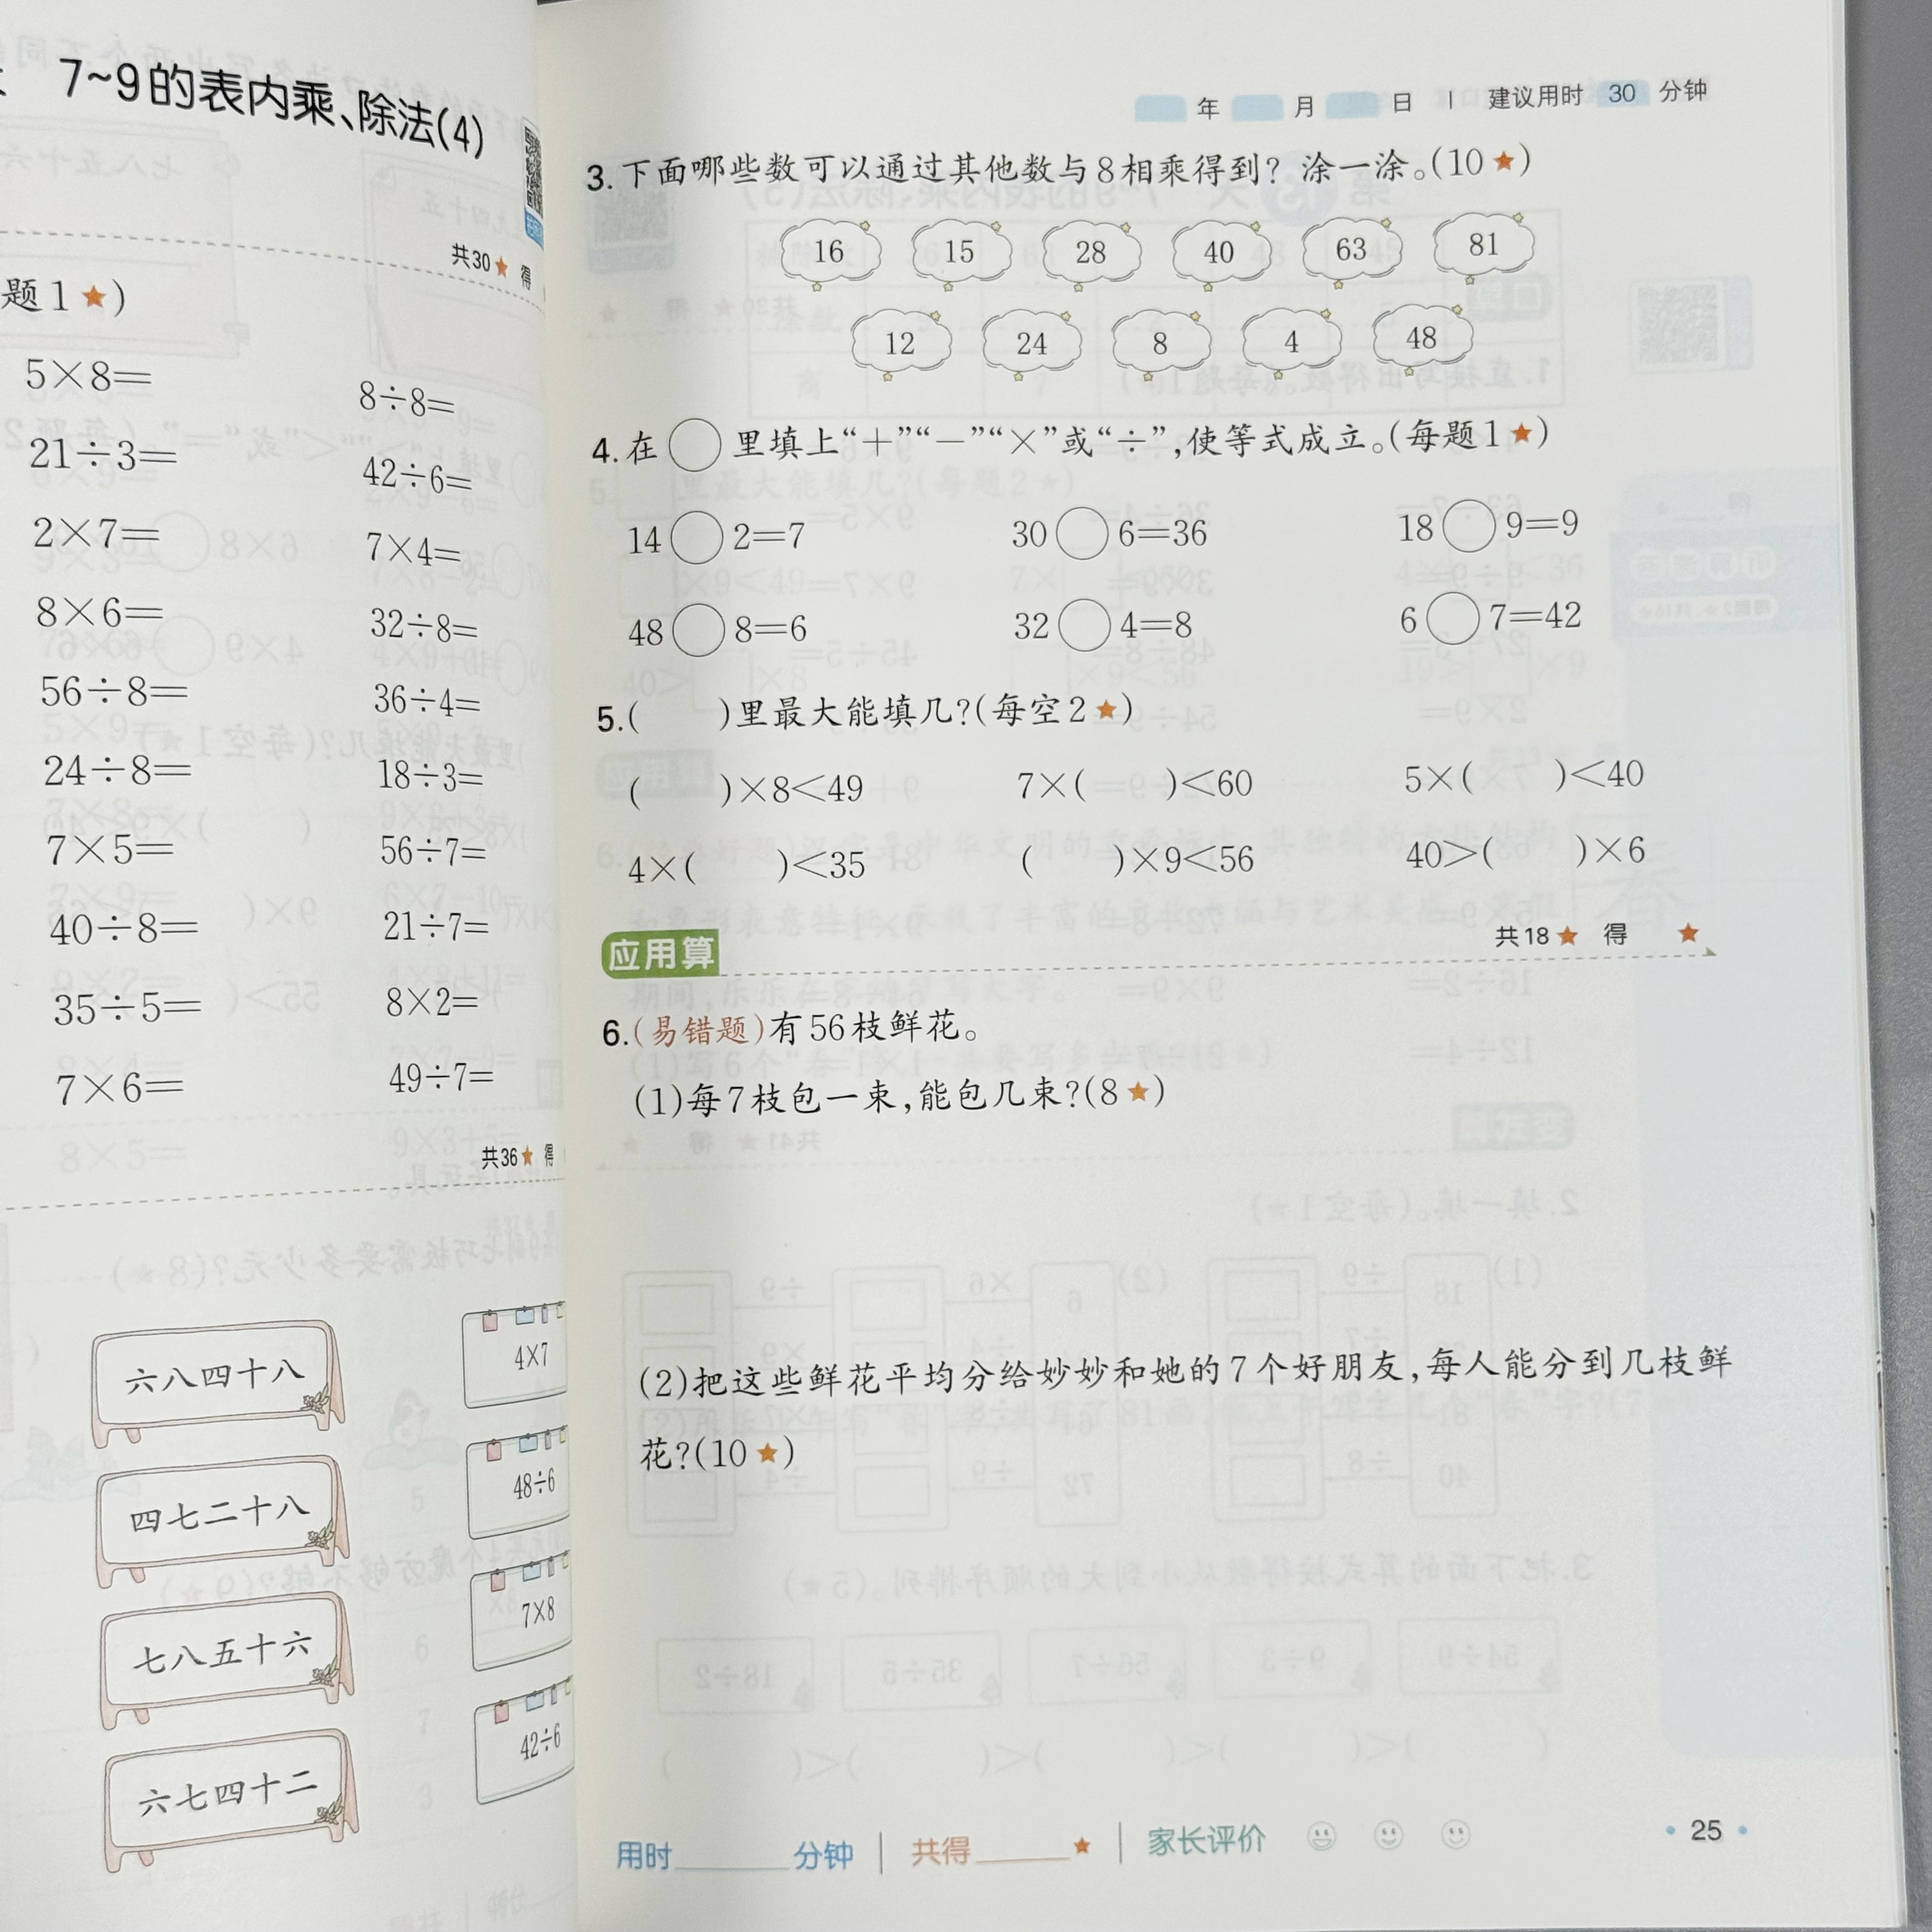 7~9的表内乘、除法(4)
共30★ 得
题1★)
5×8= 8÷8=
21÷3= 42÷6=
2×7= 7×4=
8×6= 32÷8=
56÷8= 36÷4=
24÷8= 18÷3=
7×5= 56÷7=
40÷8= 21÷7=
35÷5= 8×2=
7×6= 49÷7=
共36★ 得
六八四十八 4×7
四七二十八 48÷6
七八五十六 7×8
六七四十二 42÷6
年 月 日 | 建议用时 30 分钟
3.下面哪些数可以通过其他数与8相乘得到?涂一涂。(10★)
16 15 28 40 63 81
12 24 8 4 48
4.在○里填上“+”“-”“×”或“÷”,使等式成立。(每题1★)
14○2=7 30○6=36 18○9=9
48○8=6 32○4=8 6○7=42
5.( )里最大能填几?(每空2★)
( )×8<49 7×( )<60 5×( )<40
4×( )<35 ( )×9<56 40>( )×6
应用算 共18★ 得 ★
6.(易错题)有56枝鲜花。
(1)每7枝包一束,能包几束?(8★)
(2)把这些鲜花平均分给妙妙和她的7个好朋友,每人能分到几枝鲜
花?(10★)
用时______分钟 | 共得______★ | 家长评价
25